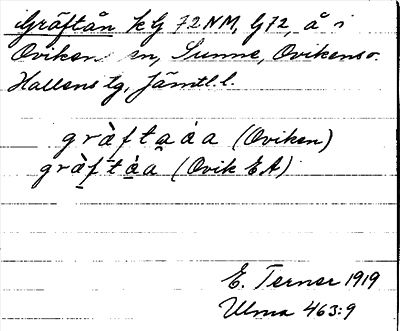 Gräftån kG 72NM, G72, å i
Oviken en, Sunne, Ovikens o.
Hallens tg, Jämtl. l.
gràftaáa (Oviken)
gràftáa (Ovik EA)
E. Terner 1919
Ulma 463:9